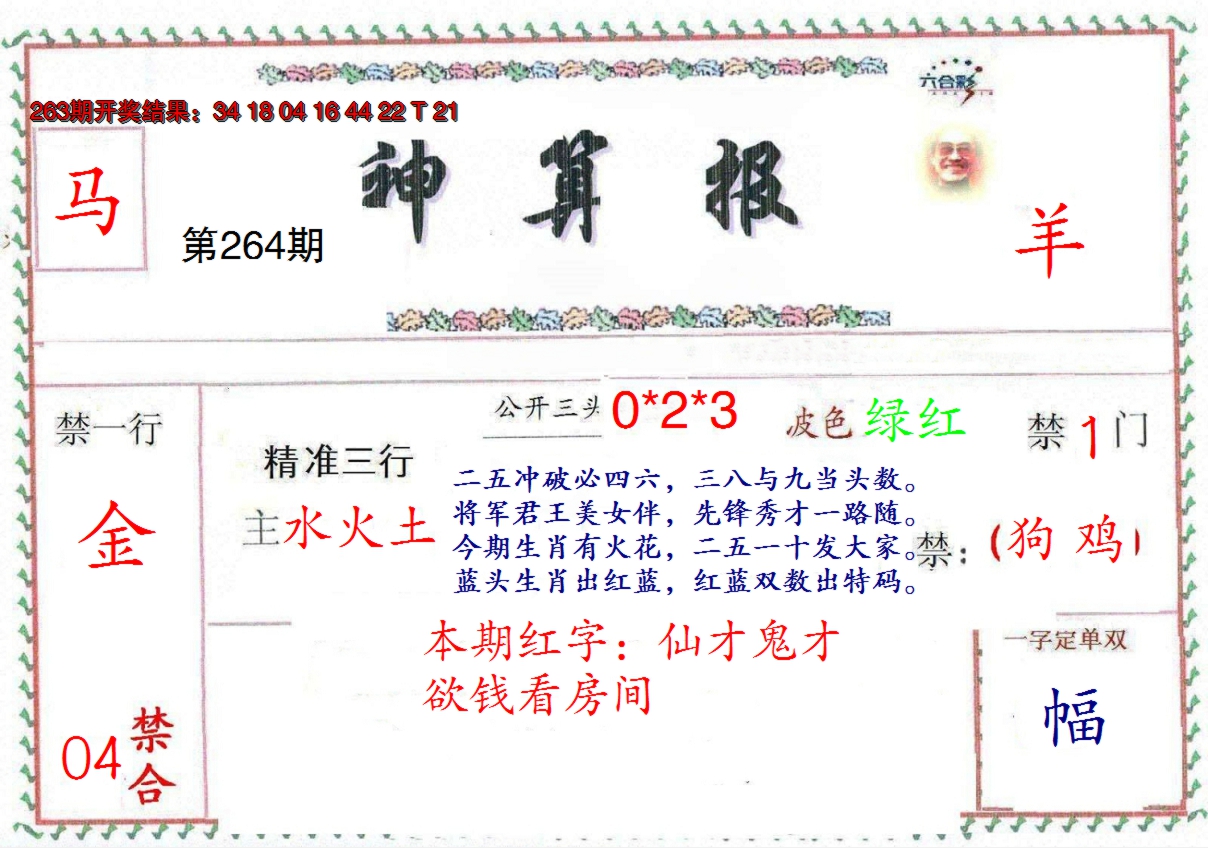 六合彩
263期开奖结果：34 18 04 16 44 22 T 21
神算报
马
第264期
羊
禁一行
金
04禁合
精准三行
主水火土
公开三头 0*2*3
波色 绿红
二五冲破必四六，三八与九当头数。
将军君王美女伴，先锋秀才一路随。
今期生肖有火花，二五一十发大家。
蓝头生肖出红蓝，红蓝双数出特码。
禁1门
禁：(狗 鸡)
本期红字：仙才鬼才
欲钱看房间
一字定单双
幅